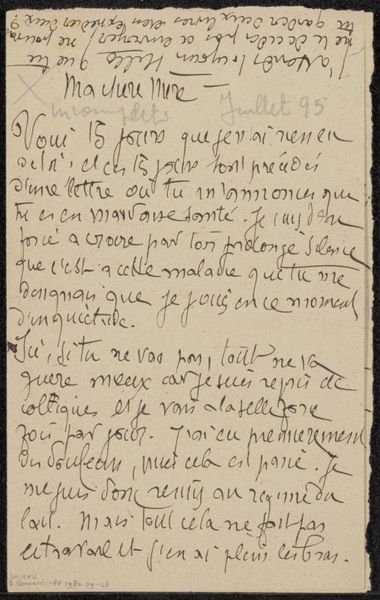 j'attends toujours Mille que tu
te decides pas a envoyer / ne pourrais
tu garder deux livres et en expedier deux ?
Ma chère Mère —
incomplète Juillet 95
Voici 15 jours que je n'ai rien eu
de toi et ces 15 jours sont précédés
d'une lettre où tu m'annonces que
tu es en mauvaise santé. Je suis donc
forcé a croire par ton prolongé silence
que c'est a cette maladie que tu me
designais que je dois en ce moment
d'inquietude.
Ici, si tu ne vas pas, tout ne va
guere mieux car je suis repris de
coliques et je vais a la selle
fois par jour. J'ai eu premierement
des douleurs, mais cela est passé. Je
me suis donc remis au regime du
lait. Mais tout cela ne fait pas
le travail et j'en ai plein les bras.